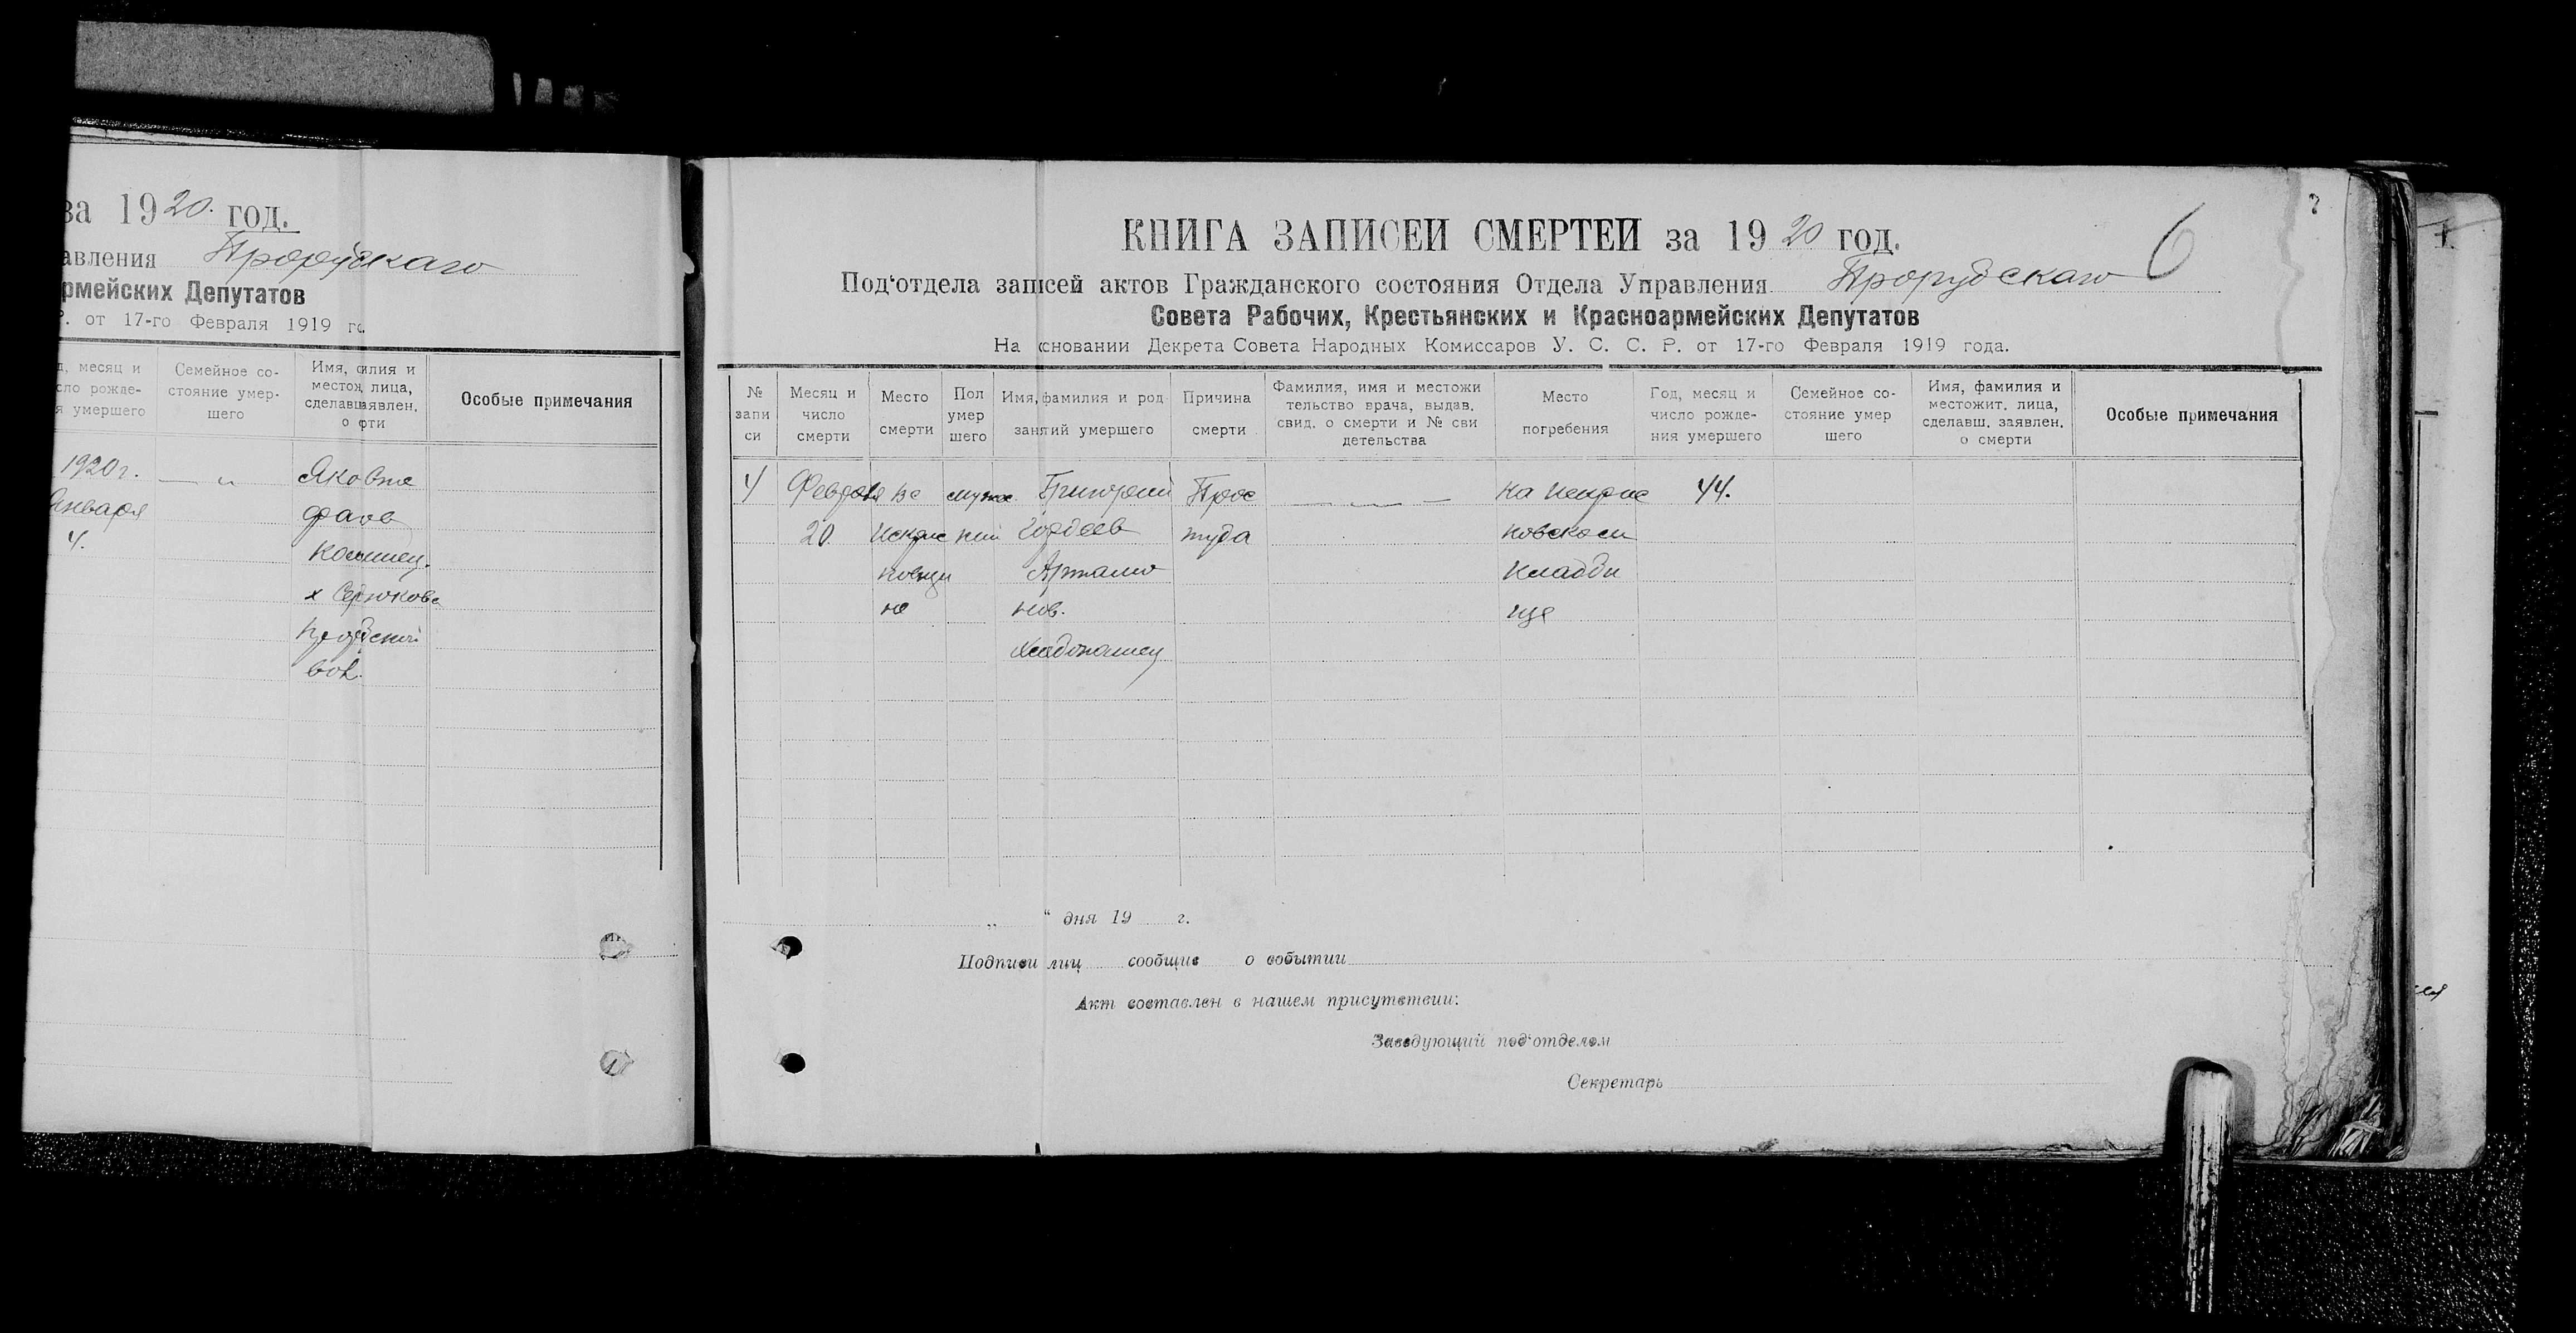 за 1920. год.
авления
армейских Депутатов
Р. от 17-го Февраля 1919 го
д, месяц и
сло рожде-
я умершего
Семейное со-
стояние умер-
шего
Имя, илия и
место лица,
сделав аявлен.
о рти
Особые примечания
1920 г.
января
4.
— „
х
вол.
КНИГА ЗАПИСЕЙ СМЕРТЕЙ за 1920 год.
6
Под'отдела записей актов Гражданского состояния Отдела Управления Прорубскаго
Совета Рабочих, Крестьянских и Красноармейских Депутатов
На основании Декрета Совета Народных Комиссаров У. С. С. Р. от 17-го Февраля 1919 года.
№
запи
си
Месяц и
число
смерти
Место
смерти
Пол
умер
шего
Имя, фамилия и род
занятий умершего
Причина
смерти
Фамилия, имя и местожи
тельство врача, выдав.
свид. о смерти и № сви
детельства
Место
погребения
Год, месяц и
число рожде-
ния умершего
Семейное со-
стояние умер
шего
Имя, фамилия и
местожит. лица,
сделавш. заявлен.
о смерти
Особые примечания
4
Февраля
20
вс
Искрис
ковщи
не
мужс
кий
Григорий
Гордеев
Артамо
нов.
Хлебопашец
Прос
туда
— „ —
на Искрис
ковском
кладби
ще
44.
„ “ дня 19 г.
Подписи лиц сообщив о событии
Акт составлен в нашем присутствии:
Заведующий под'отделом
Секретарь